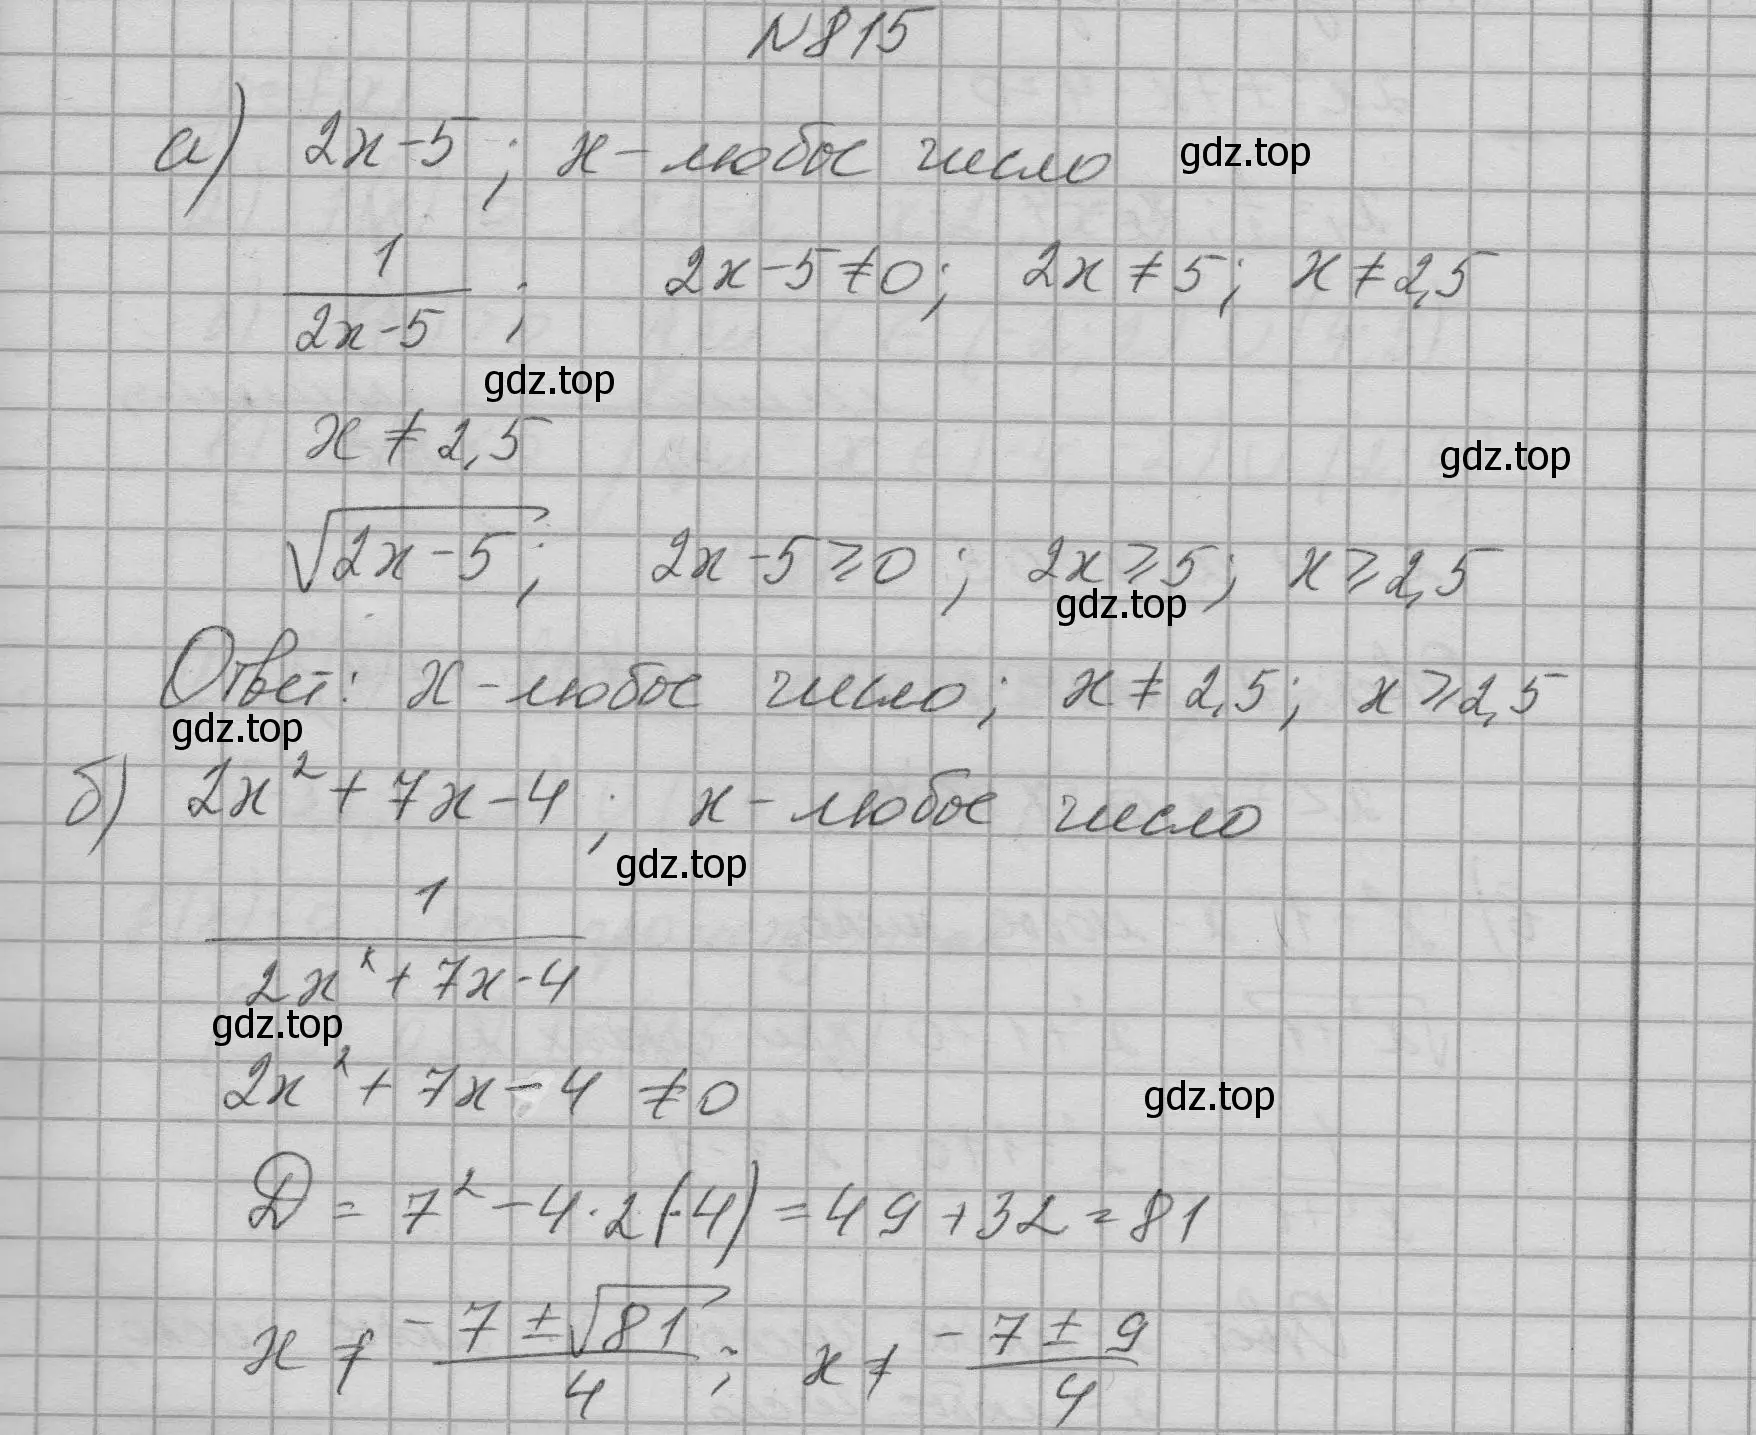 N815
а) 2x-5; x-любое число
gdz.top
1/(2x-5); 2x-5≠0; 2x≠5; x≠2,5
gdz.top
x≠2,5
gdz.top
√(2x-5); 2x-5⩾0; 2x⩾5; x⩾2,5
gdz.top
Ответ: x-любое число; x≠2,5; x⩾2,5
gdz.top
б) 2x²+7x-4; x-любое число
gdz.top
1/(2x²+7x-4)
gdz.top
2x²+7x-4≠0
gdz.top
D=7²-4·2(-4)=49+32=81
x≠(-7±√81)/4; x≠(-7±9)/4